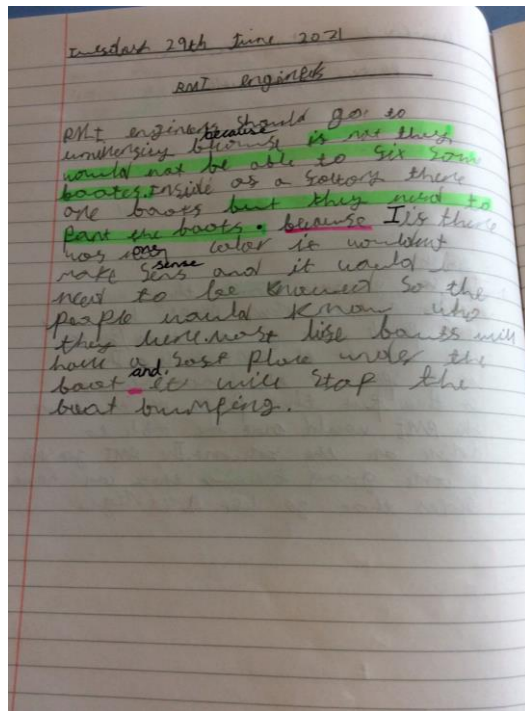 Tuesday 29th June 2021
RMI engineers
RMI engineers should go to
because
university because is not they
would not be able to six som
boates. Inside as a there
are boats but they need to
Pant the boats. because I is there
was color it wouldnt
sense
make sens and it would
need to be knowed so the
people would know who
they were. most like will
have a sost Place under the
and.
boat it will stop the
boat bumping.